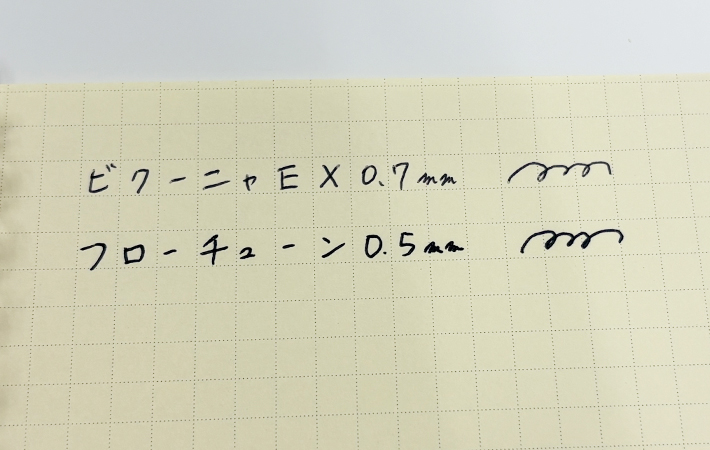 ビクーニャEX 0.7mm
フローチューン 0.5mm